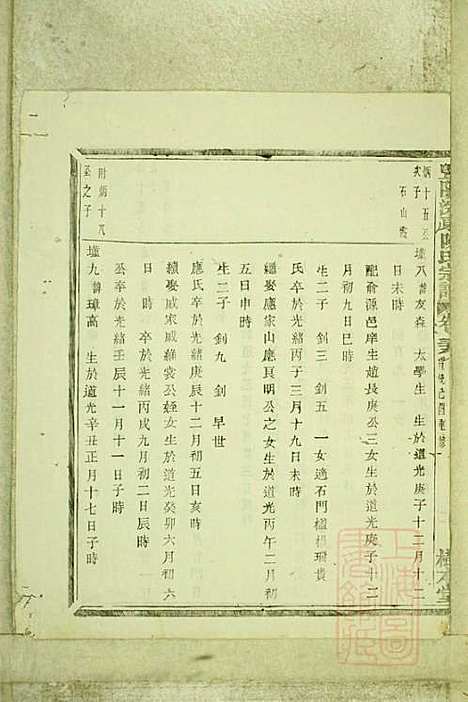 陳氏宗譜
炳十五公
次子
石山派
壚八諱友森 太學生 生於道光庚子十二月十二
日未時
配俞源邑庠生趙長庚公三女生於道光庚子十二
月初九日巳時
生二子 釗三 釗五 一女適石門
氏卒於光緒丙子三月十九日未時
繼娶應家山應良明公之女生於道光丙午二月初
五日申時
生二子 釗九 釗 早世
應氏卒於光緒庚辰十二月初五日亥時
續娶戚家戚維裳公姪女生於道光癸卯六月初六
日 時 卒於光緒丙戌九月初二日辰時
公卒於光緒壬辰十一月十一日子時
附炳十八
公之子
壚九諱璋高 生於道光辛丑正月十七日子時